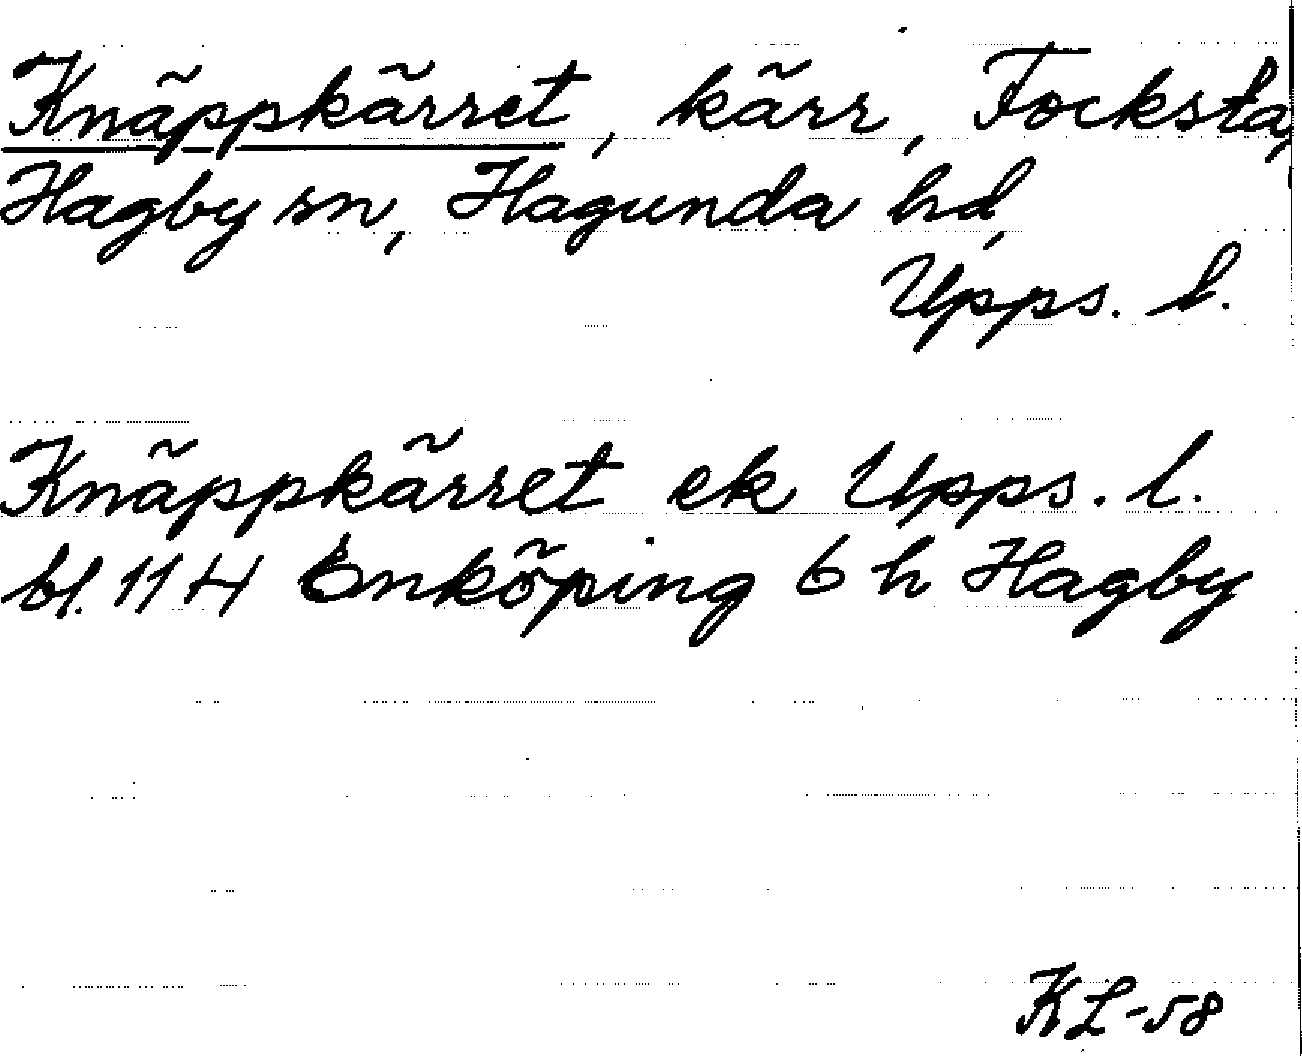 Knäppkärret, kärr, Focksta,
Hagby sn, Hagunda hd,
Upps. l.
Knäppkärret ek Upps. l.
bl. 114 Enköping 6 h Hagby
KL-58